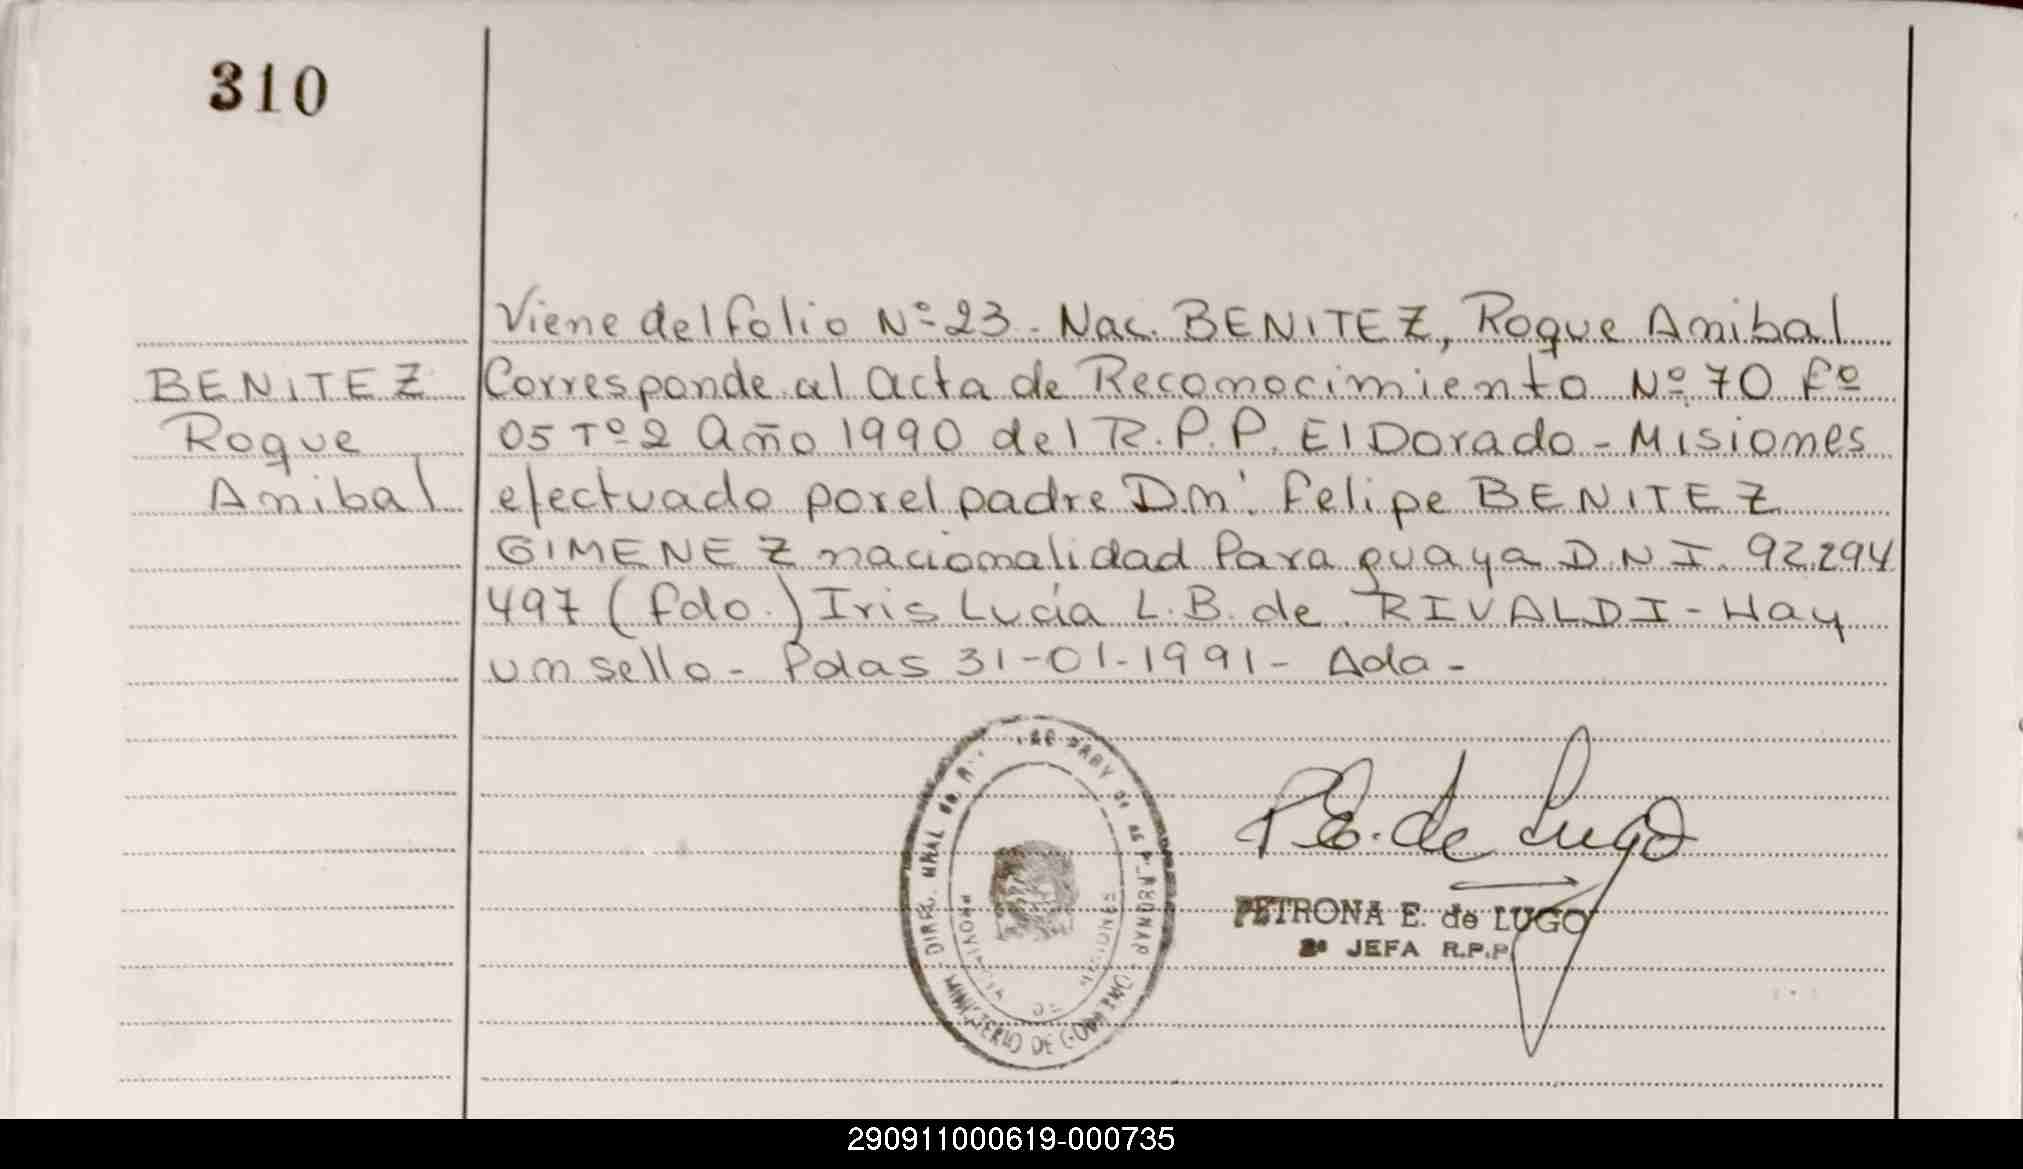 310
Viene del folio Nº 23 - Nac. BENITEZ, Roque Anibal
BENITEZ
Roque
Anibal
Corresponde al acta de Reconocimiento Nº 70 Fº
05 Tº 2 Año 1990 del R.P.P. El Dorado - Misiones
efectuado por el padre Dn. Felipe BENITEZ
GIMENEZ nacionalidad Paraguaya D.N.I. 92.294
497 (fdo.) Iris Lucía L.B. de RIVALDI - Hay
un sello - Pdas 31-01-1991 - Ada -
P.E. de Lugo
PETRONA E. de LUGO
2º JEFA R.P.P
DIREC. GRAL de
MINISTERIO DE GOBIERNO
DE
290911000619-000735